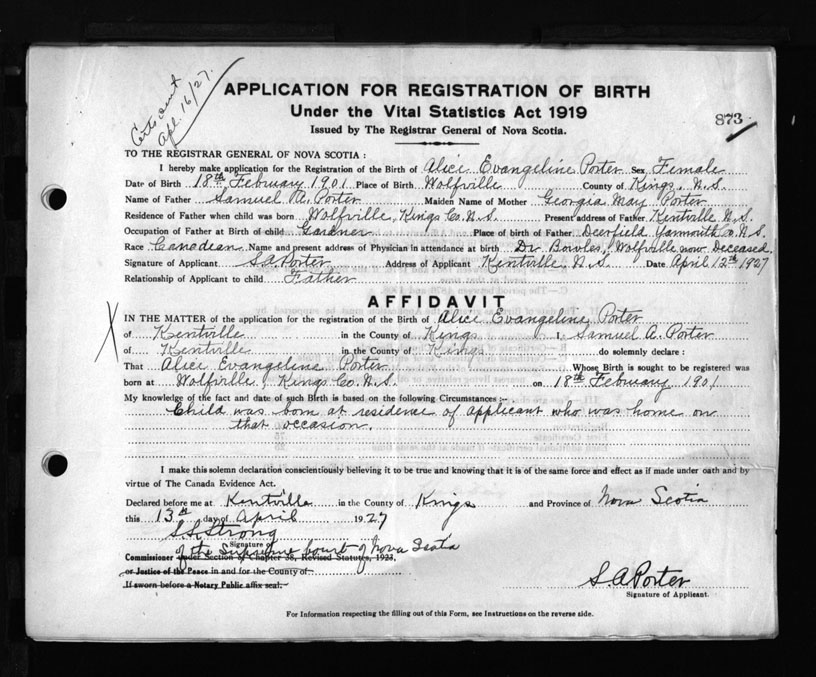 Certs sent
Apl. 16/27.
APPLICATION FOR REGISTRATION OF BIRTH
Under the Vital Statistics Act 1919
873
Issued by The Registrar General of Nova Scotia.
TO THE REGISTRAR GENERAL OF NOVA SCOTIA :
I hereby make application for the Registration of the Birth of Alice Evangeline Porter Sex Female
Date of Birth 18th February 1901 Place of Birth Wolfville County of Kings, N.S.
Name of Father Samuel A. Porter Maiden Name of Mother Georgia May Porter
Residence of Father when child was born Wolfville, Kings Co. N.S. Present address of Father Kentville N.S.
Occupation of Father at Birth of child Gardner Place of Birth of Father Deerfield Yarmouth Co. N.S.
Race Canadean Name and present address of Physician in attendance at birth Dr Bowles, Wolfville now Deceased.
Signature of Applicant S.A. Porter Address of Applicant Kentville, N.S. Date April 12th 1927
Relationship of Applicant to child Father
AFFIDAVIT
X
IN THE MATTER of the application for the registration of the Birth of Alice Evangeline Porter
of Kentville in the County of Kings I, Samuel A. Porter
of Kentville in the County of Kings do solemnly declare :
That Alice Evangeline Porter Whose Birth is sought to be registered was
born at Wolfville, Kings Co. N.S. on 18th February 1901
My knowledge of the fact and date of such Birth is based on the following Circumstances :-
Child was born at residence of applicant who was home on
that occasion.
I make this solemn declaration conscientiously believing it to be true and knowing that it is of the same force and effect as if made under oath and by
virtue of The Canada Evidence Act.
Declared before me at Kentville in the County of Kings and Province of Nova Scotia
this 13th day of April 1927
Strong
Signature of
of the Supreme Court of Nova Scotia
Commissioner under Section 8 Chapter 38, Revised Statutes, 1923,
or Justice of the Peace in and for the County of
If sworn before a Notary Public affix seal.
S A Porter
Signature of Applicant.
For Information respecting the filling out of this Form, see Instructions on the reverse side.